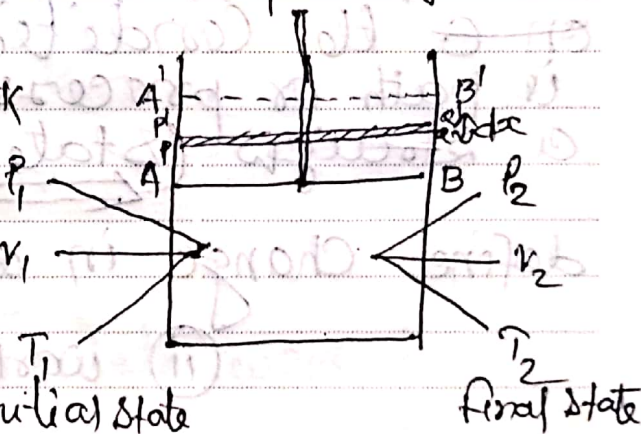 K A' B'
P' dx
P
A B
P₁ P₂
V₁ V₂
T₁ T₂
uitial state final state